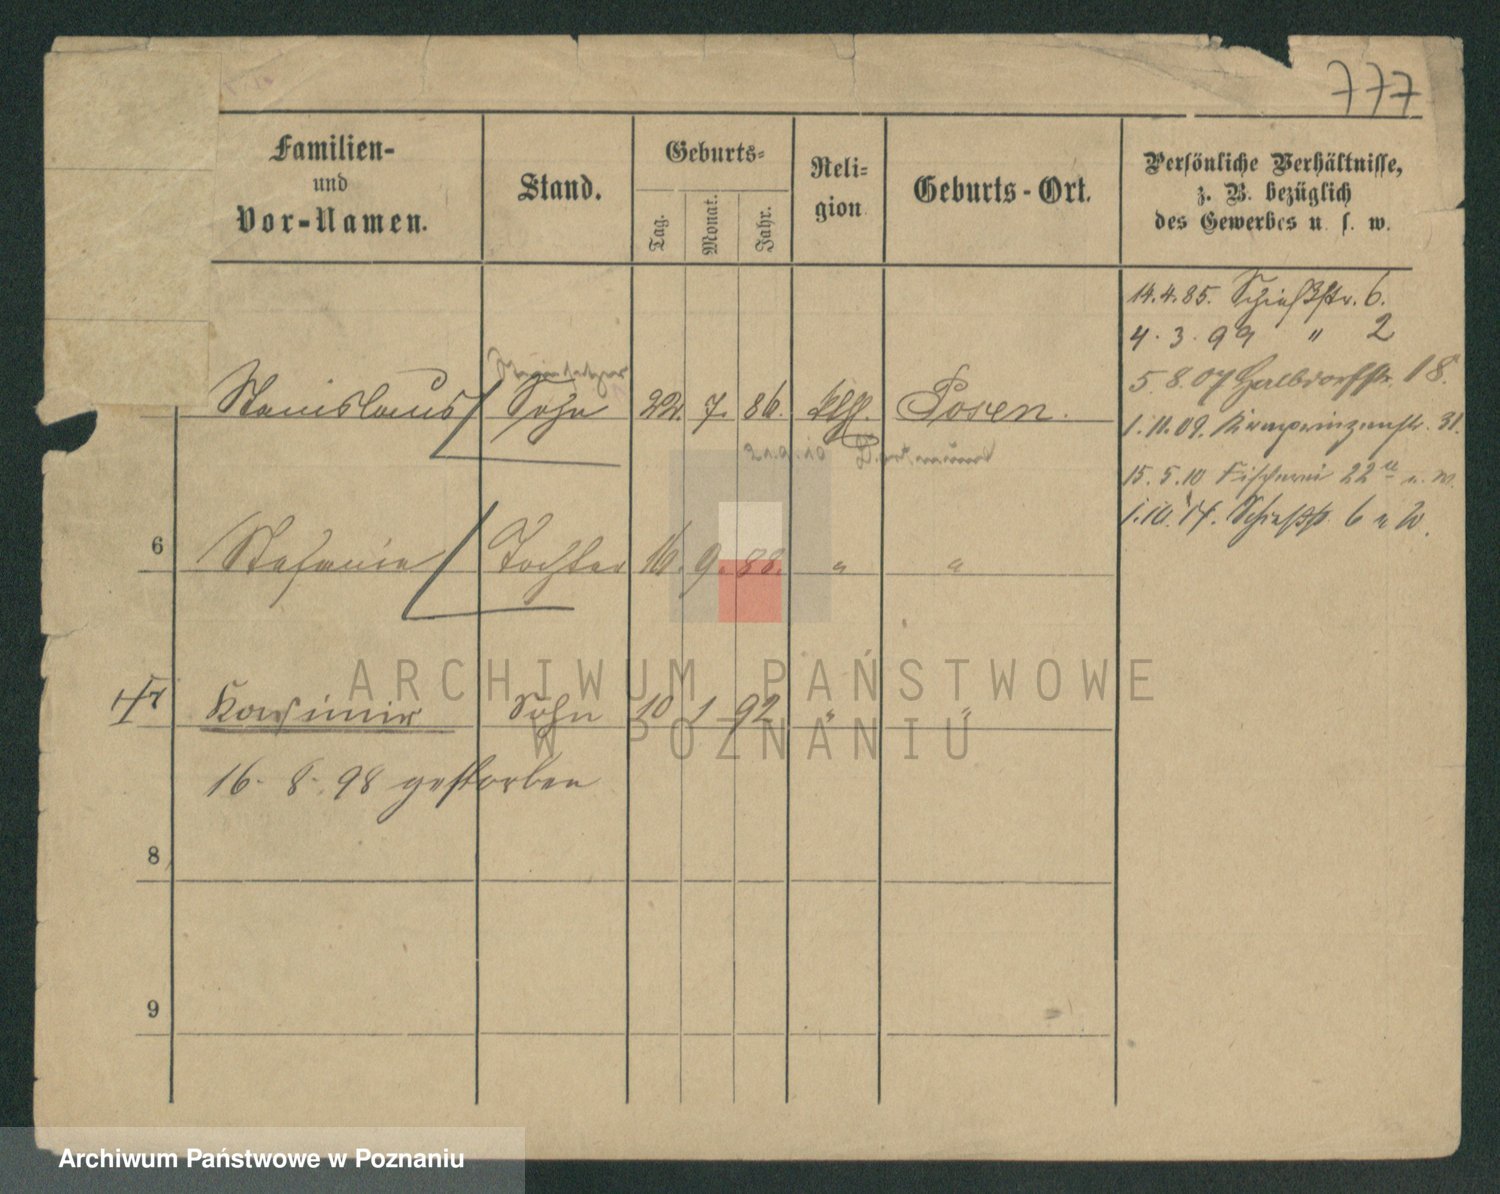 777
Familien-
und
Vor-Namen.
Stand.
Geburts-
Tag.
Monat.
Jahr.
Reli-
gion
Geburts-Ort.
Persönliche Verhältnisse,
z. B. bezüglich
des Gewerbes u. s. w.
14.4.85. Schießstr. 6.
4.3.99 " 2
5.8.07 Halbdorfstr. 18.
1.11.09. Kronprinzenstr. 31.
15.5.10 Fischerei 22
1.10.14. Schießstr. 6
Stanislaus Sohn 22. 7. 86. Posen.
21.9.10 Dortmund
6 Stefanie Tochter 16. 9. 88. " "
7 Kasimir Sohn 10 1 92 " "
16. 8. 98 gestorben
8
9
ARCHIWUM PAŃSTWOWE
W POZNANIU
Archiwum Państwowe w Poznaniu